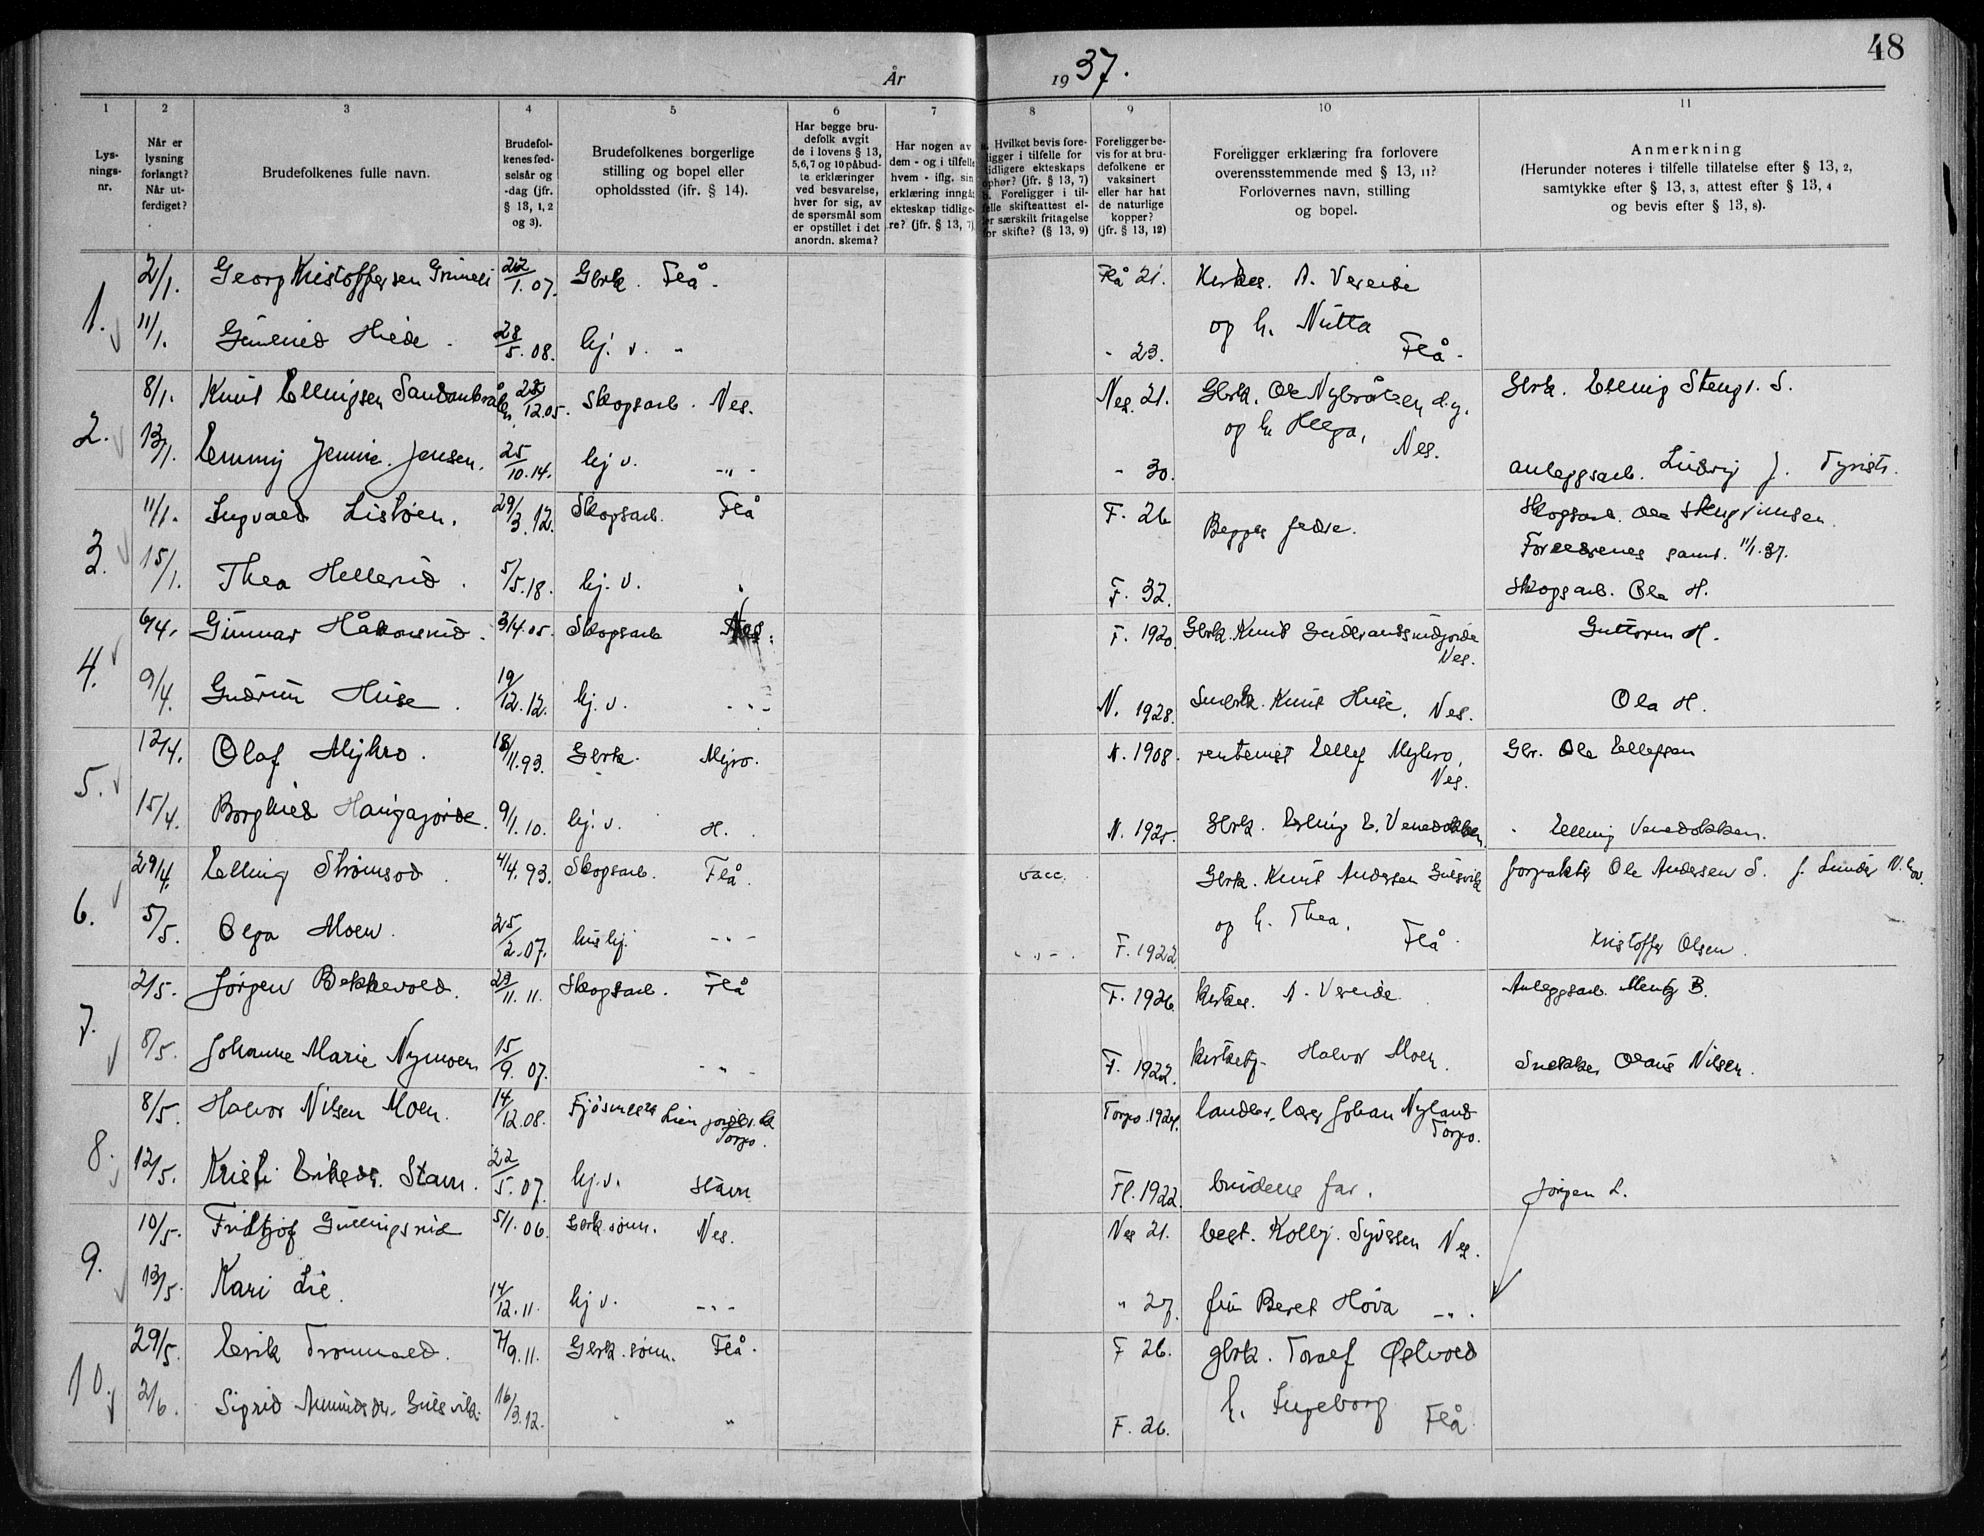 48
År 1937.
1 2 3 4 5 6 7 8 9 10 11
Lys-
nings-
nr.
Når er
lysning
forlangt?
Når ut-
ferdiget?
Brudefolkenes fulle navn.
Brudefol-
kenes fød-
selsår og
-dag (jfr.
§ 13, 1, 2
og 3).
Brudefolkenes borgerlige
stilling og bopel eller
opholdssted (ifr. § 14).
Har begge bru-
defolk avgit
de i lovens § 13,
5,6,7 og 10 påbud-
te erklæringer
ved besvarelse,
hver for sig, av
de spørsmål som
er opstillet i det
anordn. skema?
Har nogen av
dem - og i tilfelle
hvem - iflg. sin
erklæring inngåt
ekteskap tidlige-
re? (jfr. § 13, 7)
a. Hvilket bevis fore-
ligger i tilfelle for
tidligere ekteskaps
ophør? (jfr. § 13, 7)
b. Foreligger i til-
felle skifteattest el-
ler særskilt fritagelse
for skifte? (§ 13, 9)
Foreligger be-
vis for at bru-
defolkene er
vaksinert
eller har hat
de naturlige
kopper?
(jfr. § 13, 12)
Foreligger erklæring fra forlovere
overensstemmende med § 13, 11?
Forlovernes navn, stilling
og bopel.
Anmerkning
(Herunder noteres i tilfelle tillatelse efter § 13, 2,
samtykke efter § 13, 3, attest efter § 13, 4
og bevis efter § 13, 8).
1. 2/1. Georg Kristoffersen 22/1.07. Gbrk. Flå. Flå 21. A. Vereide
11/1. Hiede. 28/5.08. hj. v. " - 23. og h. Flå.
2. 8/1. Knut Ellingsen 12.05. Skogsarb. Nes. Nes. 21. Gbrk. Ole d.y. Gbrk. Elling S.
13/1. Emmy Jennie Jensen. 25/10.14. hj v. -"- - 30. og h. Helga, Nes. anleggsarb. Ludvig J.
3. 11/1. Ingvald Listøen. 29/3.12. Skogsarb. Flå F. 26 Begges fedre. Skogsarb. Ole
Foreldrenes samt. 11/1.37.
15/1. Thea Hellerud. 5/5.18. hj. v. F. 32. Skogsarb. Ole H.
4. 6/4. Gunnar Håkonsrud. 3/4.05. Skogsarb Nes. F. 1920. Gbrk. Knut Nes. Guttorm H.
9/4. Gudrun Huse. 19/12.12. hj. v. - " - N. 1928. Knut Huse, Nes. Ola H.
5. 12/4. Olaf Myhro. 18/11.93. Gbrk. Myro. N. 1908. rentenist Ellef Myhro, Nes. Gbr. Ole Ellefsen
15/4. Borghild Haugajorde. 9/1.10. hj. v. H. N. 1925. Gbrk. Erling E. Venedokken. Elling Venedokken.
6. 29/4. Elling Strømsod 4/4.93. Skogsarb. Flå. vacc. Gbrk. Knut Andersen Gulsvik forpakter Ole Andersen S.
5/5. Olga Moen. 25/2.07. hushj. - " - F. 1922. og h. Thea, Flå. Kristoffer Olsen.
7. 2/5. Jørgen Bekkevold. 23/11.11. Skogsarb. Flå F. 1926. A. Vereide. Anleggsarb. B.
8/5. Johanne Marie Nymoen 15/9.07. - " - F. 1922. kirketj. Halvor Moen. Snekker Olaus Nilsen.
8. 8/5. Halvor Nilsen Moen. 14/12.08. Torpo. Torpo. 1924. landbr. lærer Johan Nyland Torpo.
12/5. Kristi Stavn. 22/5.07. hj. v. Stavn Fl. 1922. brudens far. Jørgen L.
9. 10/5. Fridtjof Gullingsrud 5/1.06. Gbrk.sønn. Nes. Nes 21. best. Kolbj. Nes.
13/5. Kari Lie. 14/12.11. hj v. - " - " 27. fru Beret Hova - " -
10. 29/5. Erik Trommald. 7/9.11. Gbrk. sønn. Flå. F 26. gbrk. Toralf Østvold
2/6. Sigrid Gulsvik. 16/3.12. " F. 26. h. Ingeborg Flå